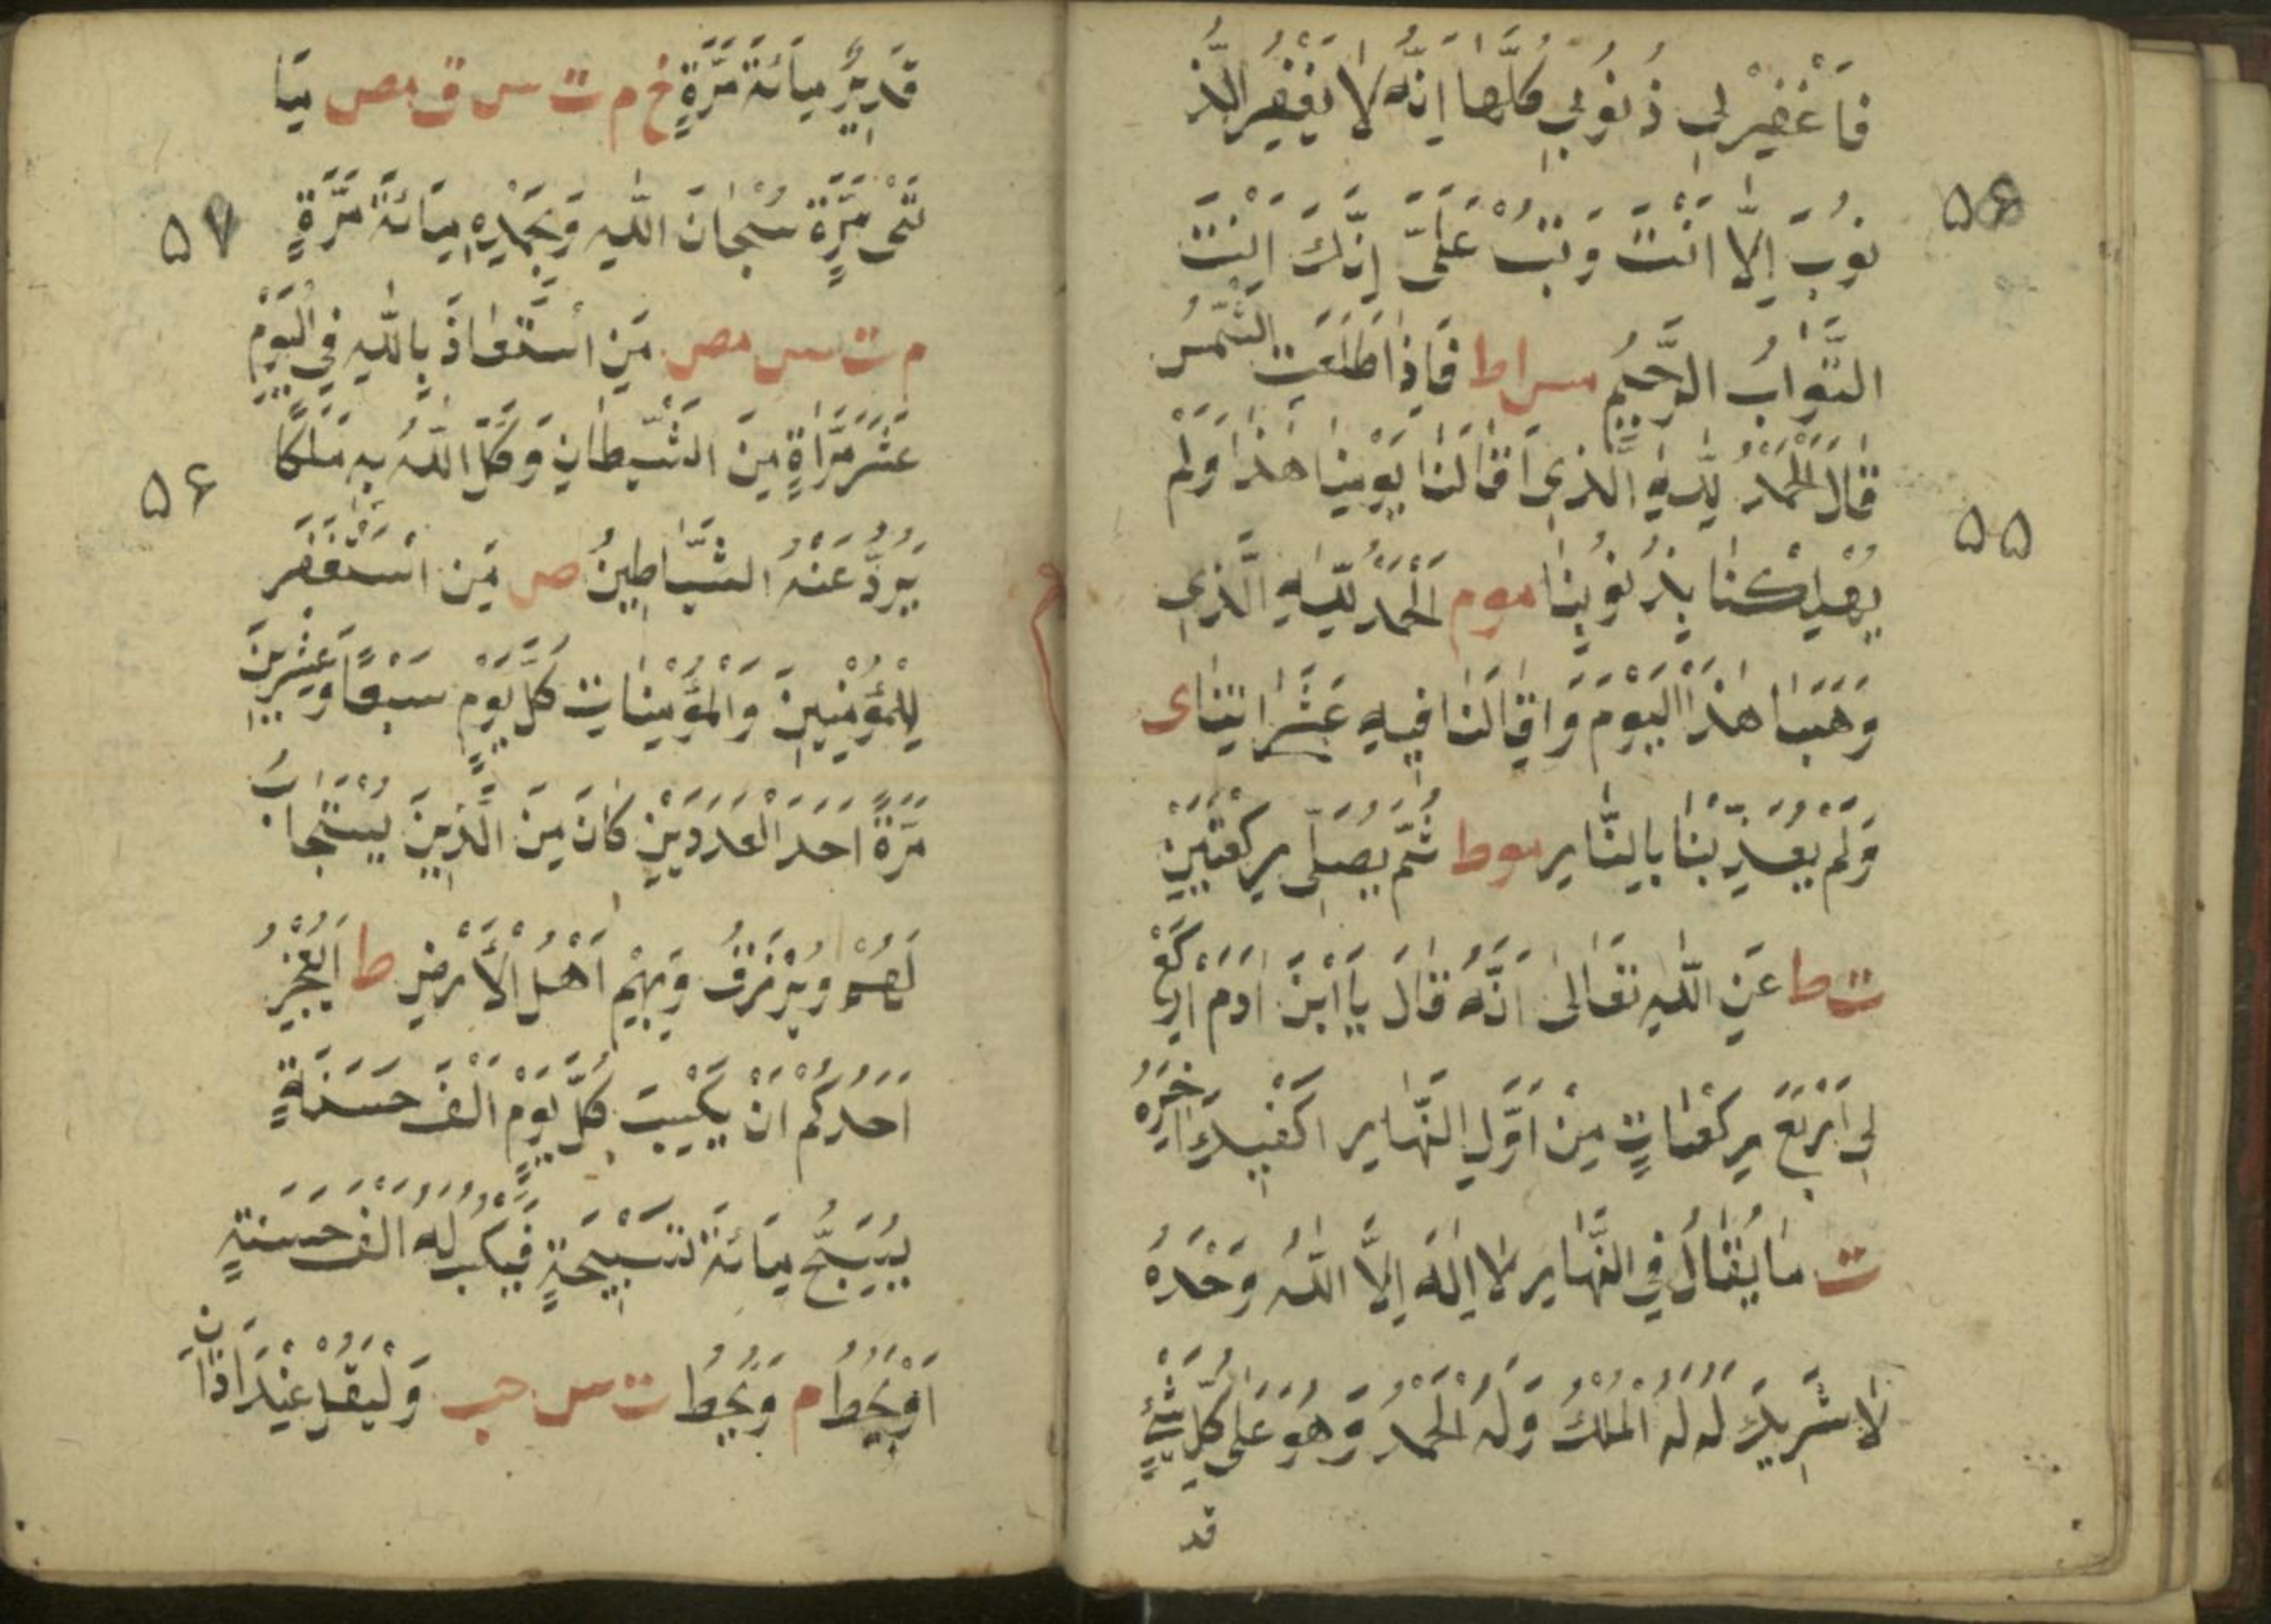 فَاغْفِرْلِي ذُنُوبِي كُلَّهَا اِنَّهُ لَا يَغْفِرُ الذُّ
نُوبَ اِلَّا اَنْتَ وَتُبْ عَلَىَّ اِنَّكَ اَنْتَ
التَّوَّابُ الرَّحِيْمُ مس ا ط فَاِذَا طَلَعَتِ الشَّمْسُ
قَالَ الْحَمْدُ لِلّٰهِ الَّذِي اَقَالَنَا يَوْمَنَا هٰذَا وَلَمْ
يُهْلِكْنَا بِذُنُوبِنَا موم اَلْحَمْدُ لِلّٰهِ الَّذِي
وَهَبَنَا هٰذَا الْيَوْمَ وَاَقَالَنَا فِيهِ عَثَرَاتِنَا ى
وَلَمْ يُعَذِّبْنَا بِالنَّارِ موط ثُمَّ يُصَلِّى رَكْعَتَيْنِ
ت ط عَنِ اللّٰهِ تَعَالٰى اَنَّهُ قَالَ يَا ابْنَ اٰدَمَ ارْكَعْ
لِى اَرْبَعَ رَكَعَاتٍ مِنْ اَوَّلِ النَّهَارِ اَكْفِيكَ اٰخِرَهُ
ت مَا يُقَالُ فِي النَّهَارِ لَا اِلٰهَ اِلَّا اللّٰهُ وَحْدَهُ
لَا شَرِيكَ لَهُ لَهُ الْمُلْكُ وَلَهُ الْحَمْدُ وَهُوَ عَلٰى كُلِّ شَيْءٍ
قد
۵۵
قَدِيرٌ مِائَةَ مَرَّةٍ خ م ت س ق مص مِيَا
ئَتَىْ مَرَّةٍ ا سُبْحَانَ اللّٰهِ وَبِحَمْدِهِ مِائَةَ مَرَّةٍ
م ت س مص مَنِ اسْتَعَاذَ بِاللّٰهِ فِي الْيَوْمِ
عَشَرَ مَرَّاةٍ مِنَ الشَّيْطَانِ وَكَّلَ اللّٰهُ بِهِ مَلَكًا
يَرُدُّ عَنْهُ الشَّيَاطِينُ ص مَنِ اسْتَغْفَرَ
لِلْمُؤْمِنِينَ وَالْمُؤْمِنَاتِ كُلَّ يَوْمٍ سَبْعًا وَعِشْرِينَ
مَرَّةً اَحَدَ الْعَدَدَيْنِ كَانَ مِنَ الَّذِينَ يُسْتَجَابُ
لَهُمْ وَيُرْزَقُ بِهِمْ اَهْلُ الْاَرْضِ ط اَيَعْجِزُ
اَحَدُكُمْ اَنْ يَكْسِبَ كُلَّ يَوْمٍ اَلْفَ حَسَنَةٍ
يُسَبِّحُ مِائَةَ تَسْبِيحَةٍ فَيُكْتَبُ لَهُ اَلْفُ حَسَنَةٍ
اَوْ يُحَطُّ م وَيُحَطُّ ت س حب وَلْيَقُلْ عِنْدَ اَذَانِ
۵۷
۵۶